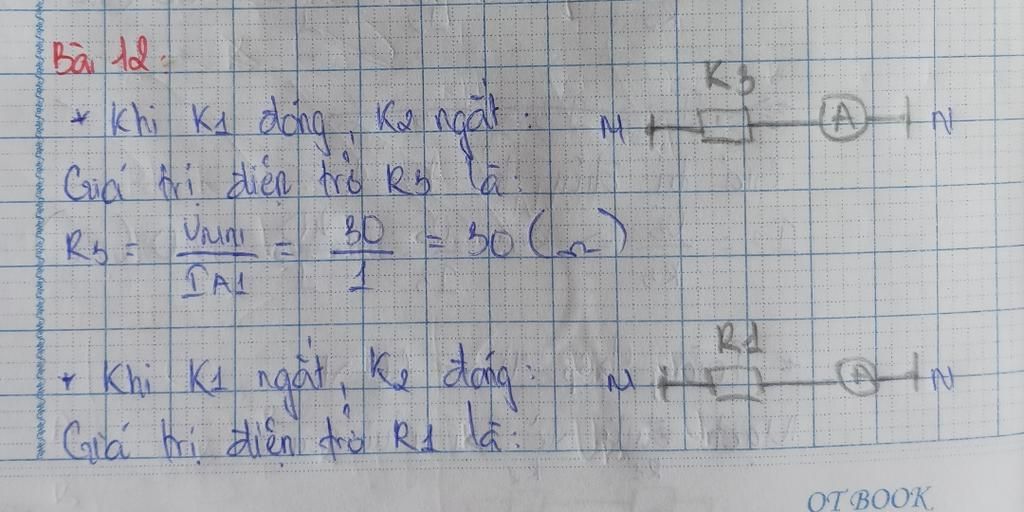 Bài 12:
* Khi K1 đóng, K2 ngắt:
R3
M A N
Giá trị điện trở R3 là:
R3 = UMN / IA1 = 30 / 1 = 30 (Ω)
* Khi K1 ngắt, K2 đóng:
R1
M A N
Giá trị điện trở R1 là:
OT BOOK